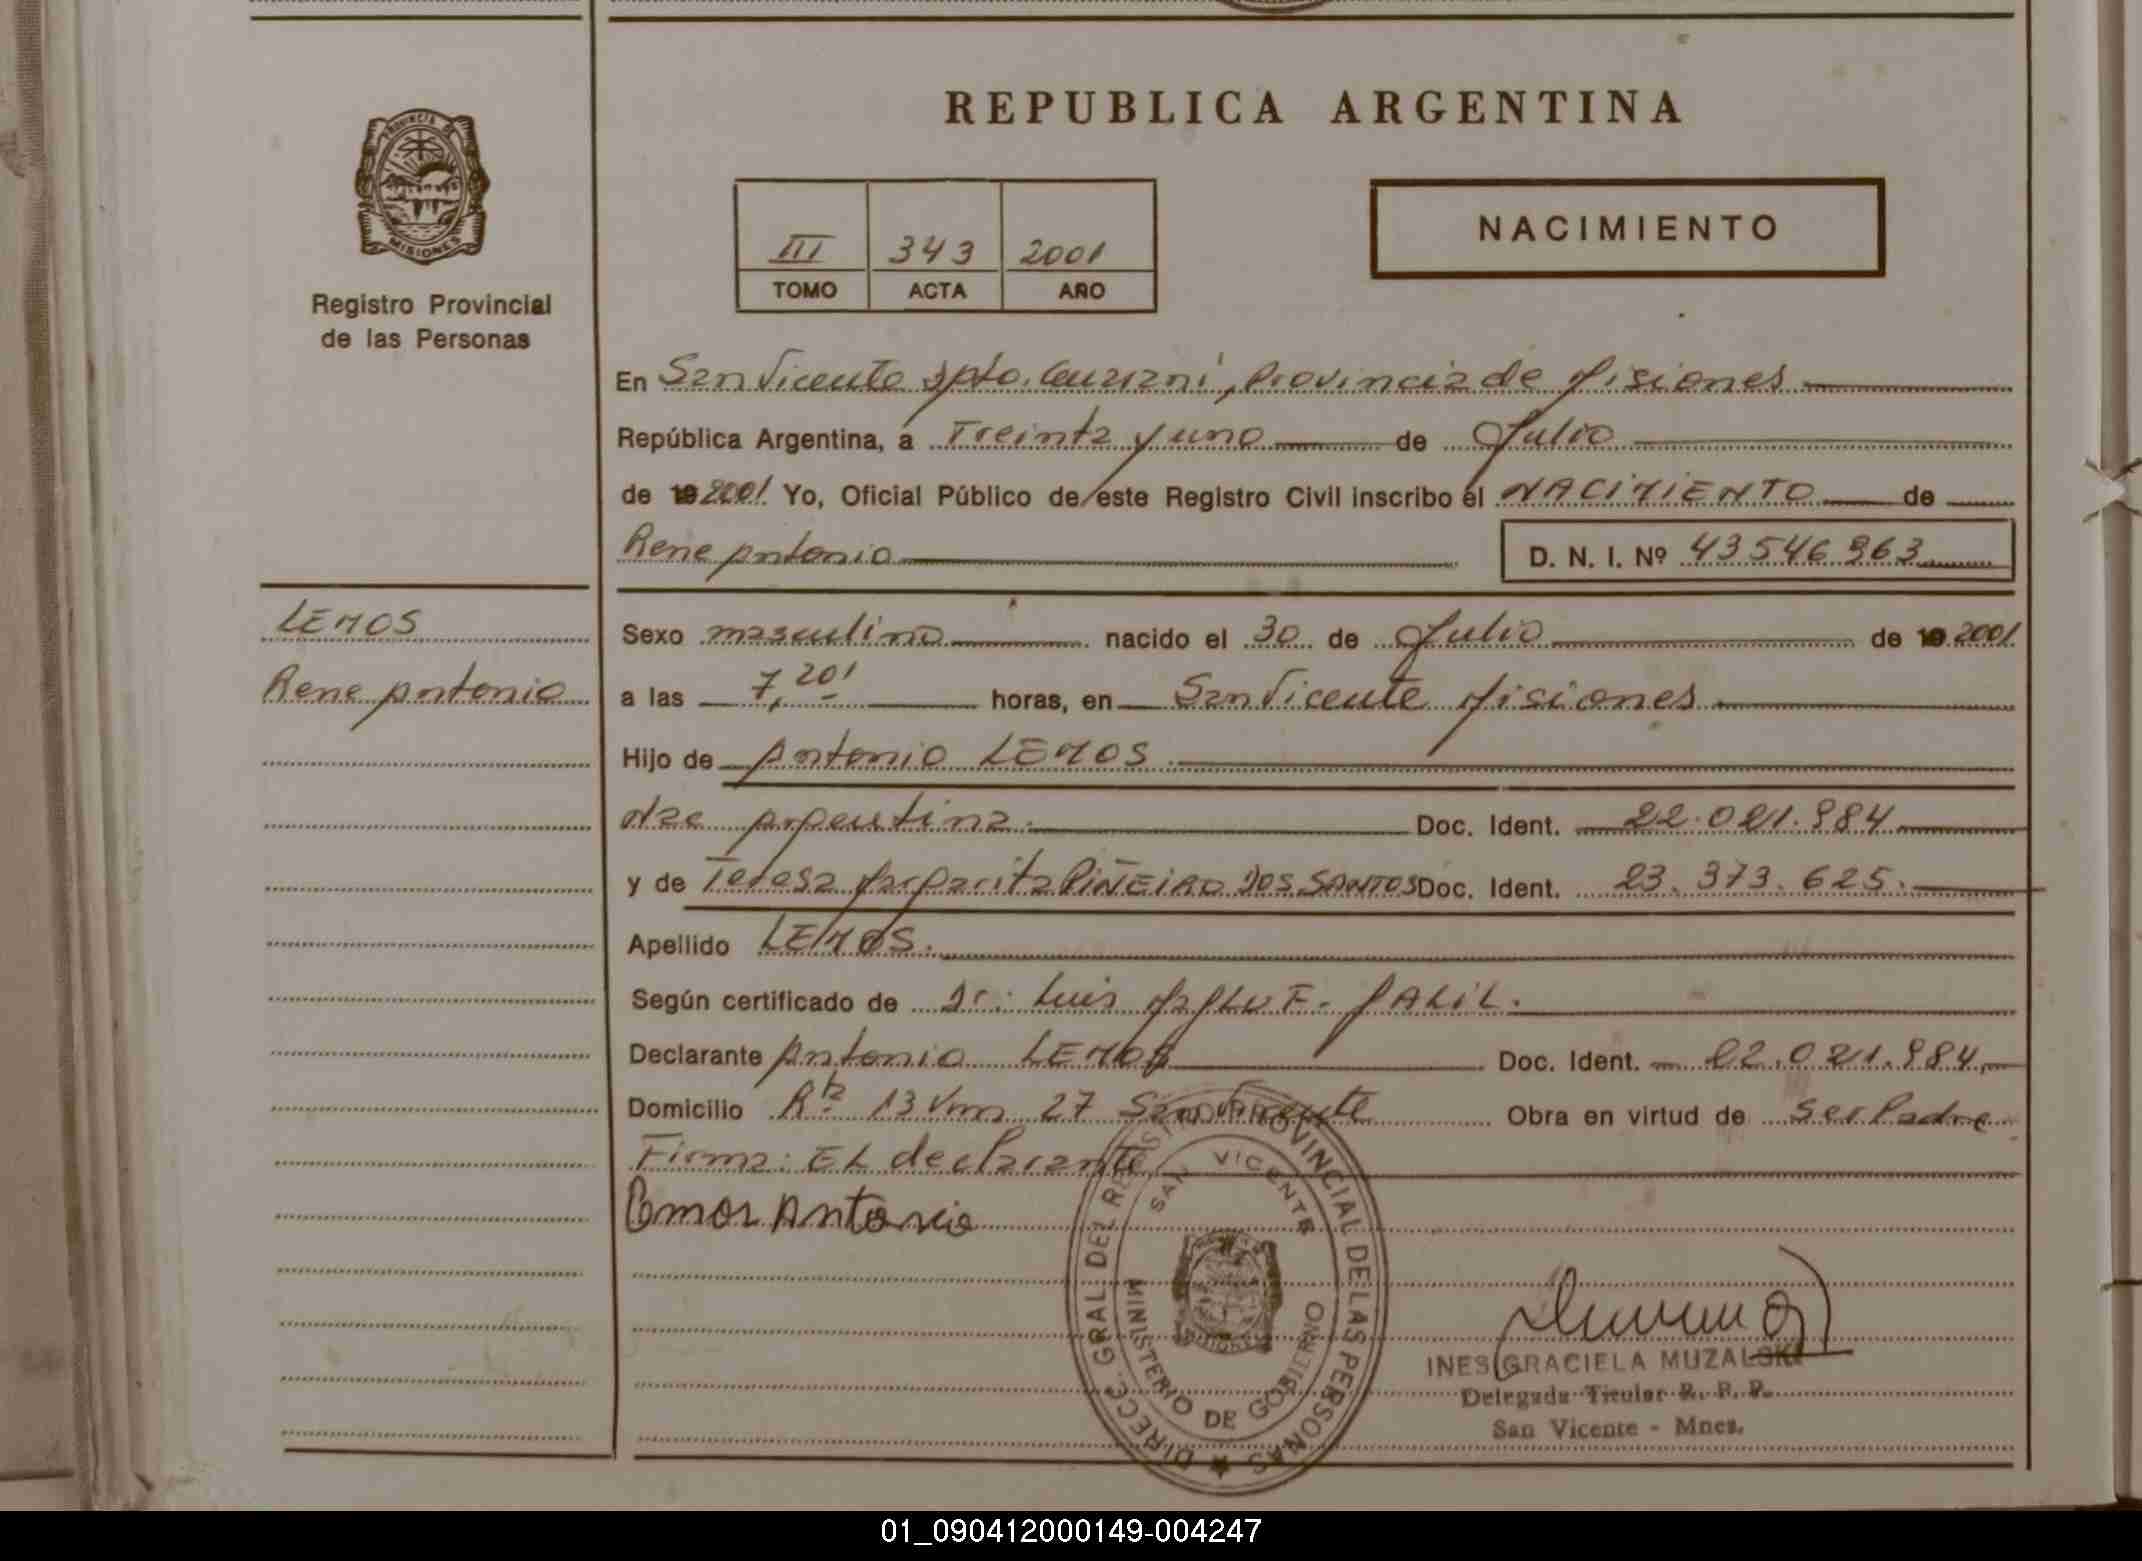 REPUBLICA ARGENTINA
PROVINCIA DE
MISIONES
Registro Provincial
de las Personas
III 343 2001
TOMO ACTA AÑO
NACIMIENTO
En San Vicente Dpto. Guarani, Provincia de Misiones
República Argentina, a Treinta y uno de Julio
de 19 2001 Yo, Oficial Público de este Registro Civil inscribo el NACIMIENTO de
Rene Antonio D. N. I. Nº 43546963
LEMOS
Rene Antonio
Sexo masculino nacido el 30 de Julio de 19 2001
a las 7,20' horas, en San Vicente Misiones
Hijo de Antonio LEMOS
Nac Argentina. Doc. Ident. 22.021.984
y de Teresa Margarita PIÑEIRO DOS SANTOS Doc. Ident. 23.373.625.
Apellido LEMOS.
Según certificado de Dr. Luis
Declarante Antonio LEMOS Doc. Ident. 22.021.984
Domicilio Rta 13 Km 27 San Vicente Obra en virtud de ser Padre
Firma: EL declarante
Antonio
DIRECC. GRAL. DEL REGISTRO PROVINCIAL DE LAS PERSONAS
SAN VICENTE
MINISTERIO DE GOBIERNO
INES GRACIELA MUZALSKI
Delegada Titular R. P. P.
San Vicente - Mnes.
01_090412000149-004247